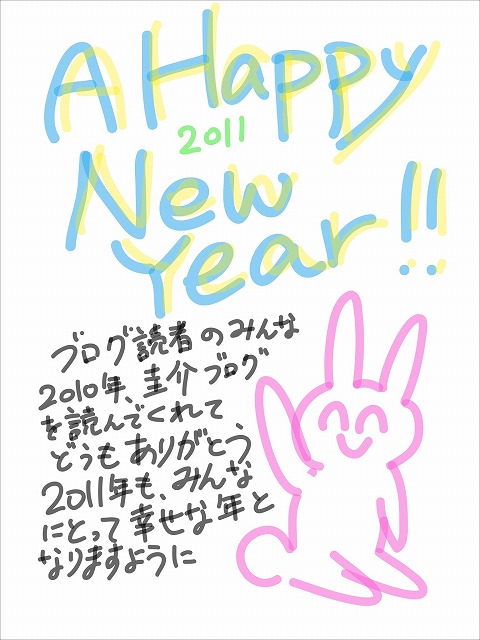 A Happy
2011
New
Year!!
ブログ読者のみんな
2010年、圭介ブログ
を読んでくれて
どうもありがとう
2011年も、みんな
にとって幸せな年と
なりますように